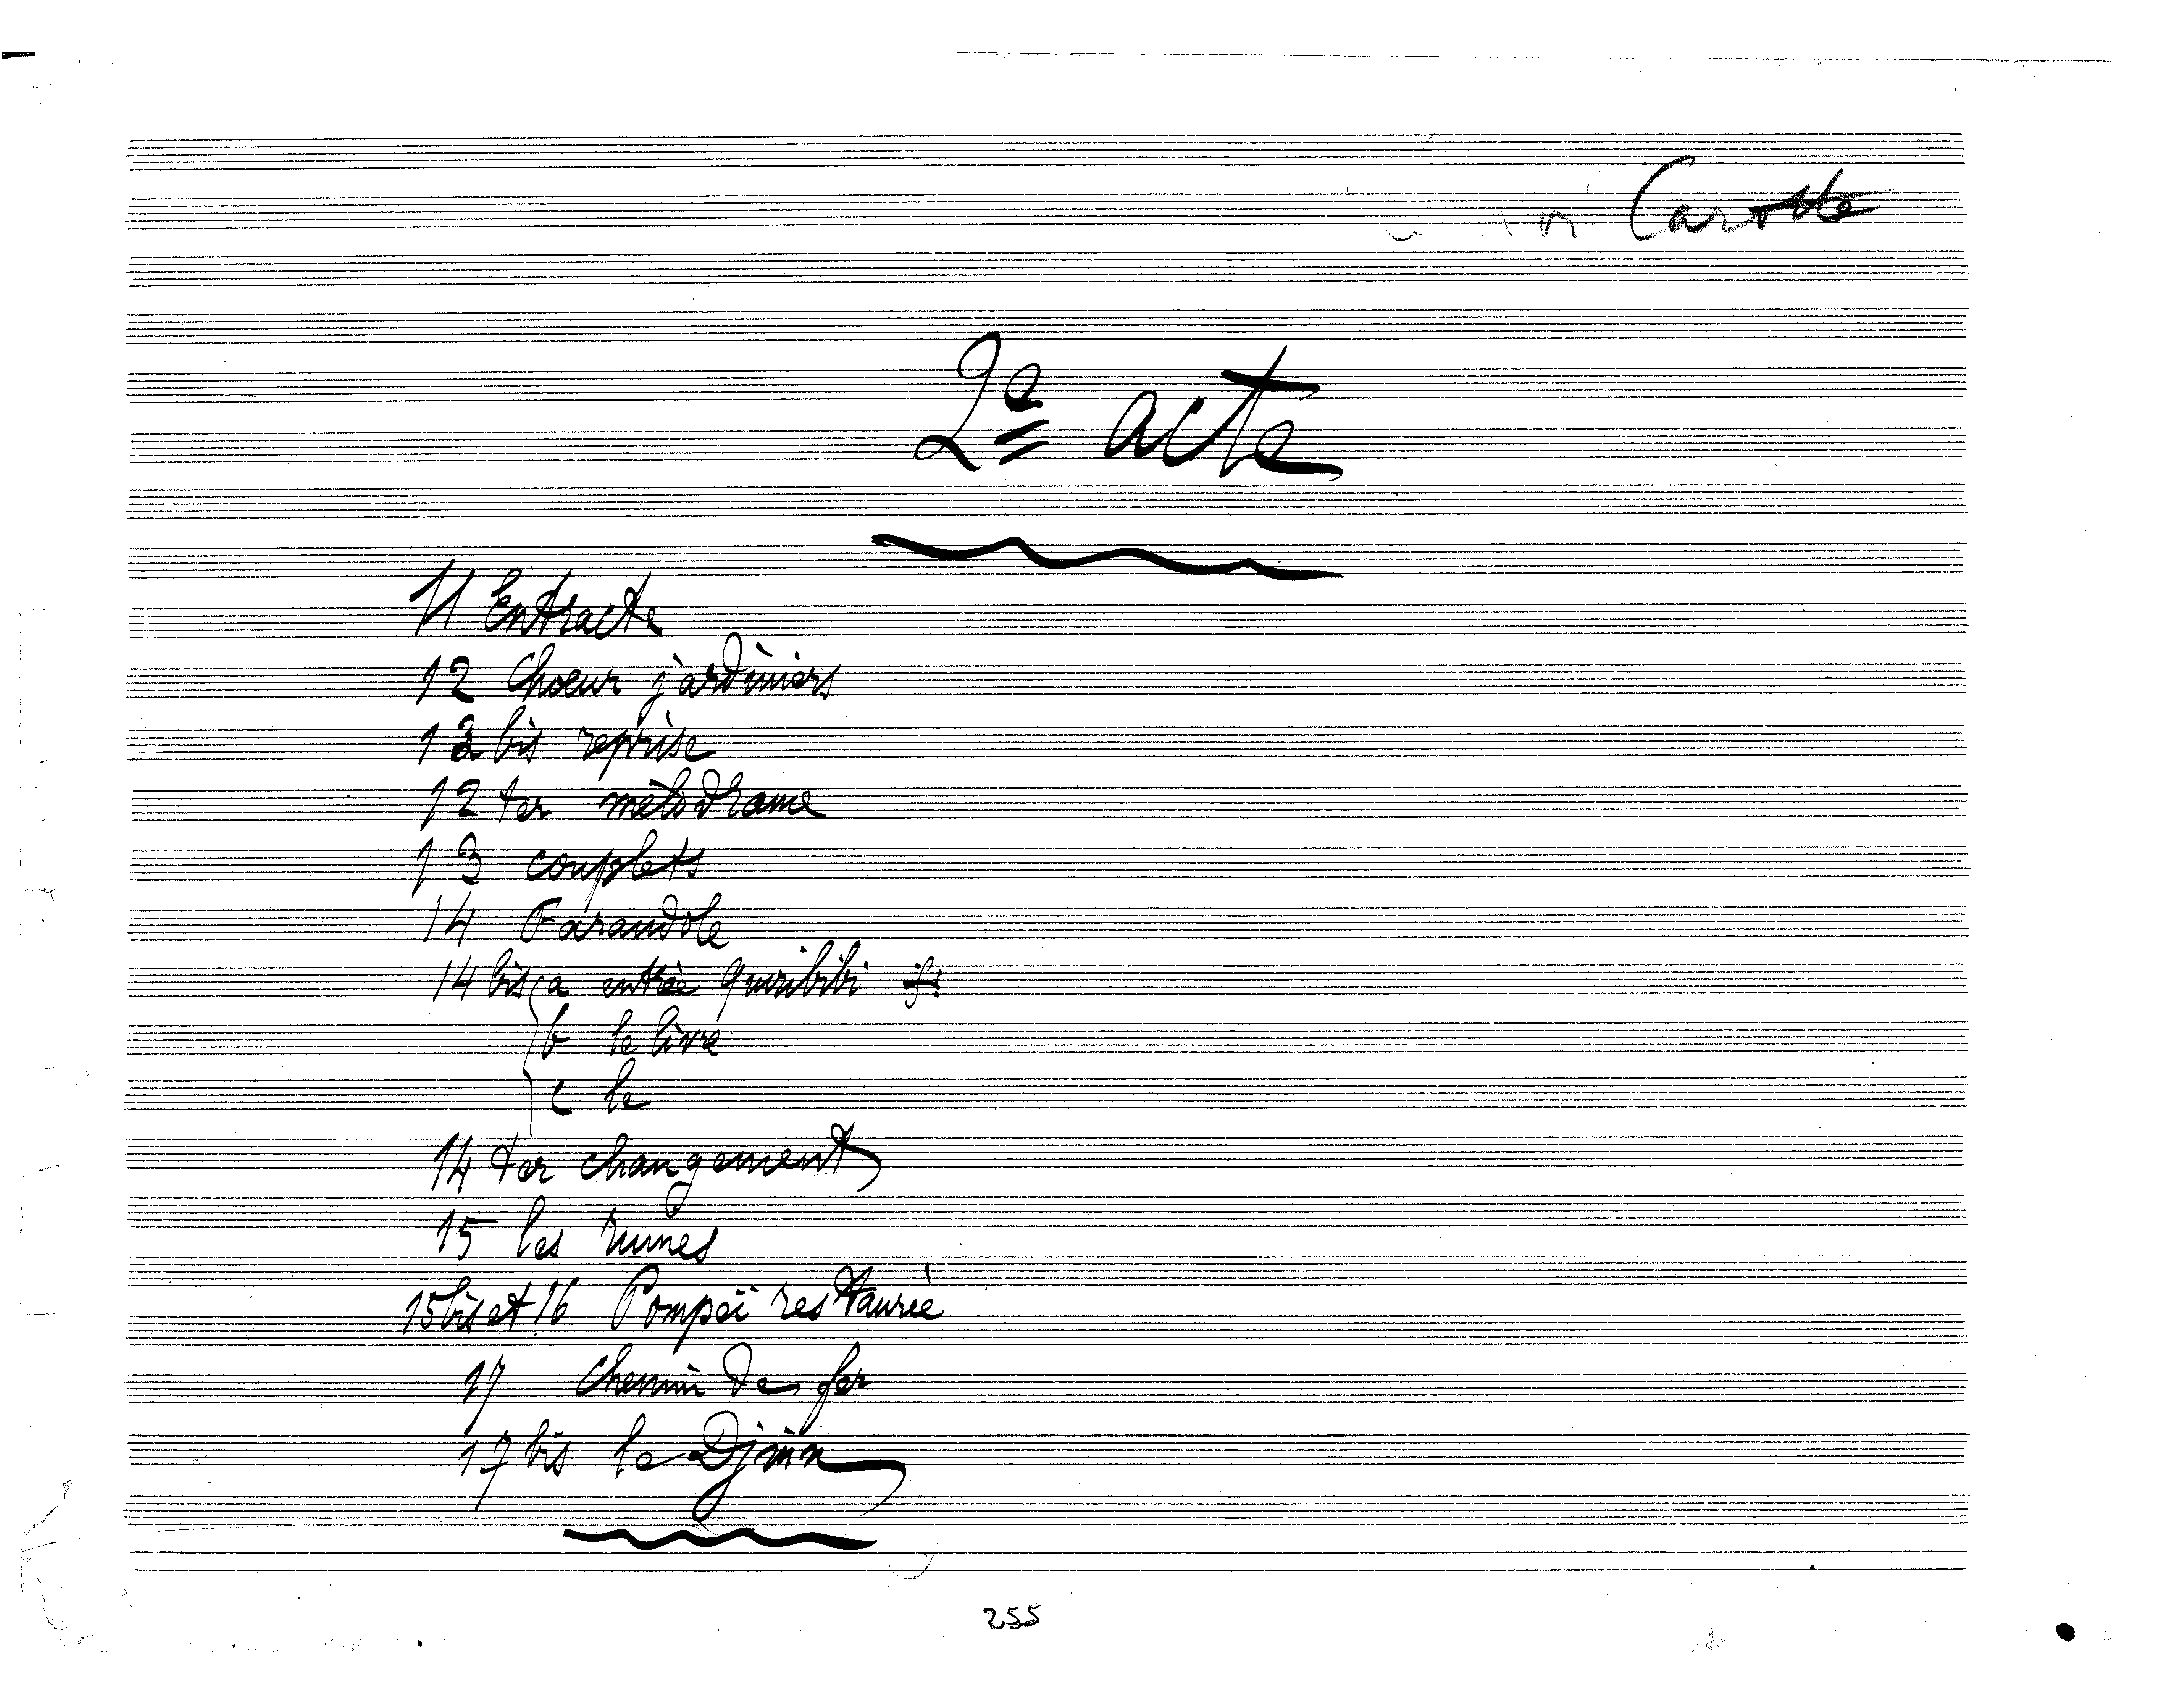 Carotte
2e acte
11 Entracte
12 Choeur jardiniers
12 bis reprise
12 ter mélodrame
13 couplets
14 Farandole
14 bis a entrée Quiribibi
b le livre
c le
14 ter changement
15 les ruines
15 bis et 16 Pompeï restaurée
17 Chemin de fer
17 bis le Djinn
255